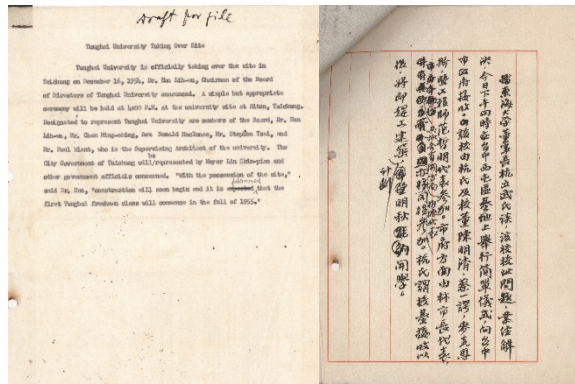 Draft for file
Tunghai University Taking Over Site
Tunghai University is officially taking over the site in
Taichung on December 16, 1954, Dr. Han Lih-wu, Chairman of the Board
of Directors of Tunghai University announced. A simple but appropriate
ceremony will be held at 4:00 P.M. at the university site at Situn, Taichung.
Designated to represent Tunghai University are members of the Board, Dr. Han
Lih-wu, Mr. Chen Ming-ching, Rev Donald Mr. Stephen Tsai, and
Mr. Paul Wiant, who is the Supervising Architect of the university. The
be
City Government of Taichung will/represented by Mayor Lin and
other government officials concerned. "With the possession of the site,"
planned
said Dr. Han, "construction will soon begin and it is expected that the
first Tunghai freshman class will commence in the fall of 1955."
據東海大學董事長杭立武氏談,該校校址問題,業經解
決,今日下午四時在台中西屯區基地上舉行簡單儀式,向台中
市政府接收。由該校由杭氏及校董陳明清,蔡一諤,麥克恩
代表參加。市府方面由林市長代表,
參加。杭氏謂校基接收以
後,將即趕工建築,明秋開學。
計劃